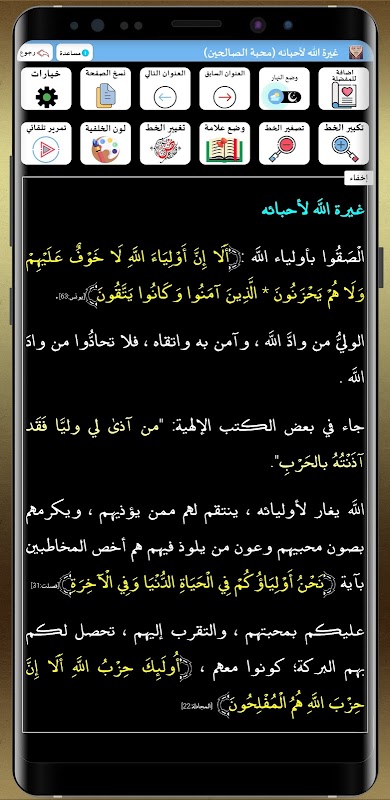 غيرة الله لأحبائه (محبة الصالحين)
مساعدة
رجوع
اضافة للمفضلة
وضع النهار
العنوان السابق
العنوان التالي
نسخ الصفحة
خيارات
تكبير الخط
تصغير الخط
وضع علامة
تغيير الخط
لون الخلفية
تمرير تلقائي
إخفاء
غيرة الله لأحبائه
الْصَقُوا بأولياء الله : ﴿أَلَا إِنَّ أَوْلِيَاءَ اللَّهِ لَا خَوْفٌ عَلَيْهِمْ
وَلَا هُمْ يَحْزَنُونَ * الَّذِينَ آمَنُوا وَكَانُوا يَتَّقُونَ﴾[يونس:63].
الوليُّ من وادَّ الله ، وآمن به واتقاه ، فلا تحادُّوا من وادَّ
اللَّه .
جاء في بعض الكتب الإلهية: "من آذىٰ لي وليًّا فَقَد
آذَنْتُهُ بالحَرْبِ".
اللَّه يغار لأوليائه ، ينتقم لهم ممن يؤذيهم ، ويكرمهم
بصون محبيهم وعون من يلوذ فيهم هم أخص المخاطبين
بآية ﴿نَحْنُ أَوْلِيَاؤُكُمْ فِي الْحَيَاةِ الدُّنْيَا وَفِي الْآخِرَةِ﴾[فصلت:31]
عليكم بمحبتهم ، والتقرب إليهم ، تحصل لكم
بهم البركة؛ كونوا معهم ، ﴿أُولَئِكَ حِزْبُ اللَّهِ أَلَا إِنَّ
حِزْبَ اللَّهِ هُمُ الْمُفْلِحُونَ﴾[المجادلة:22]